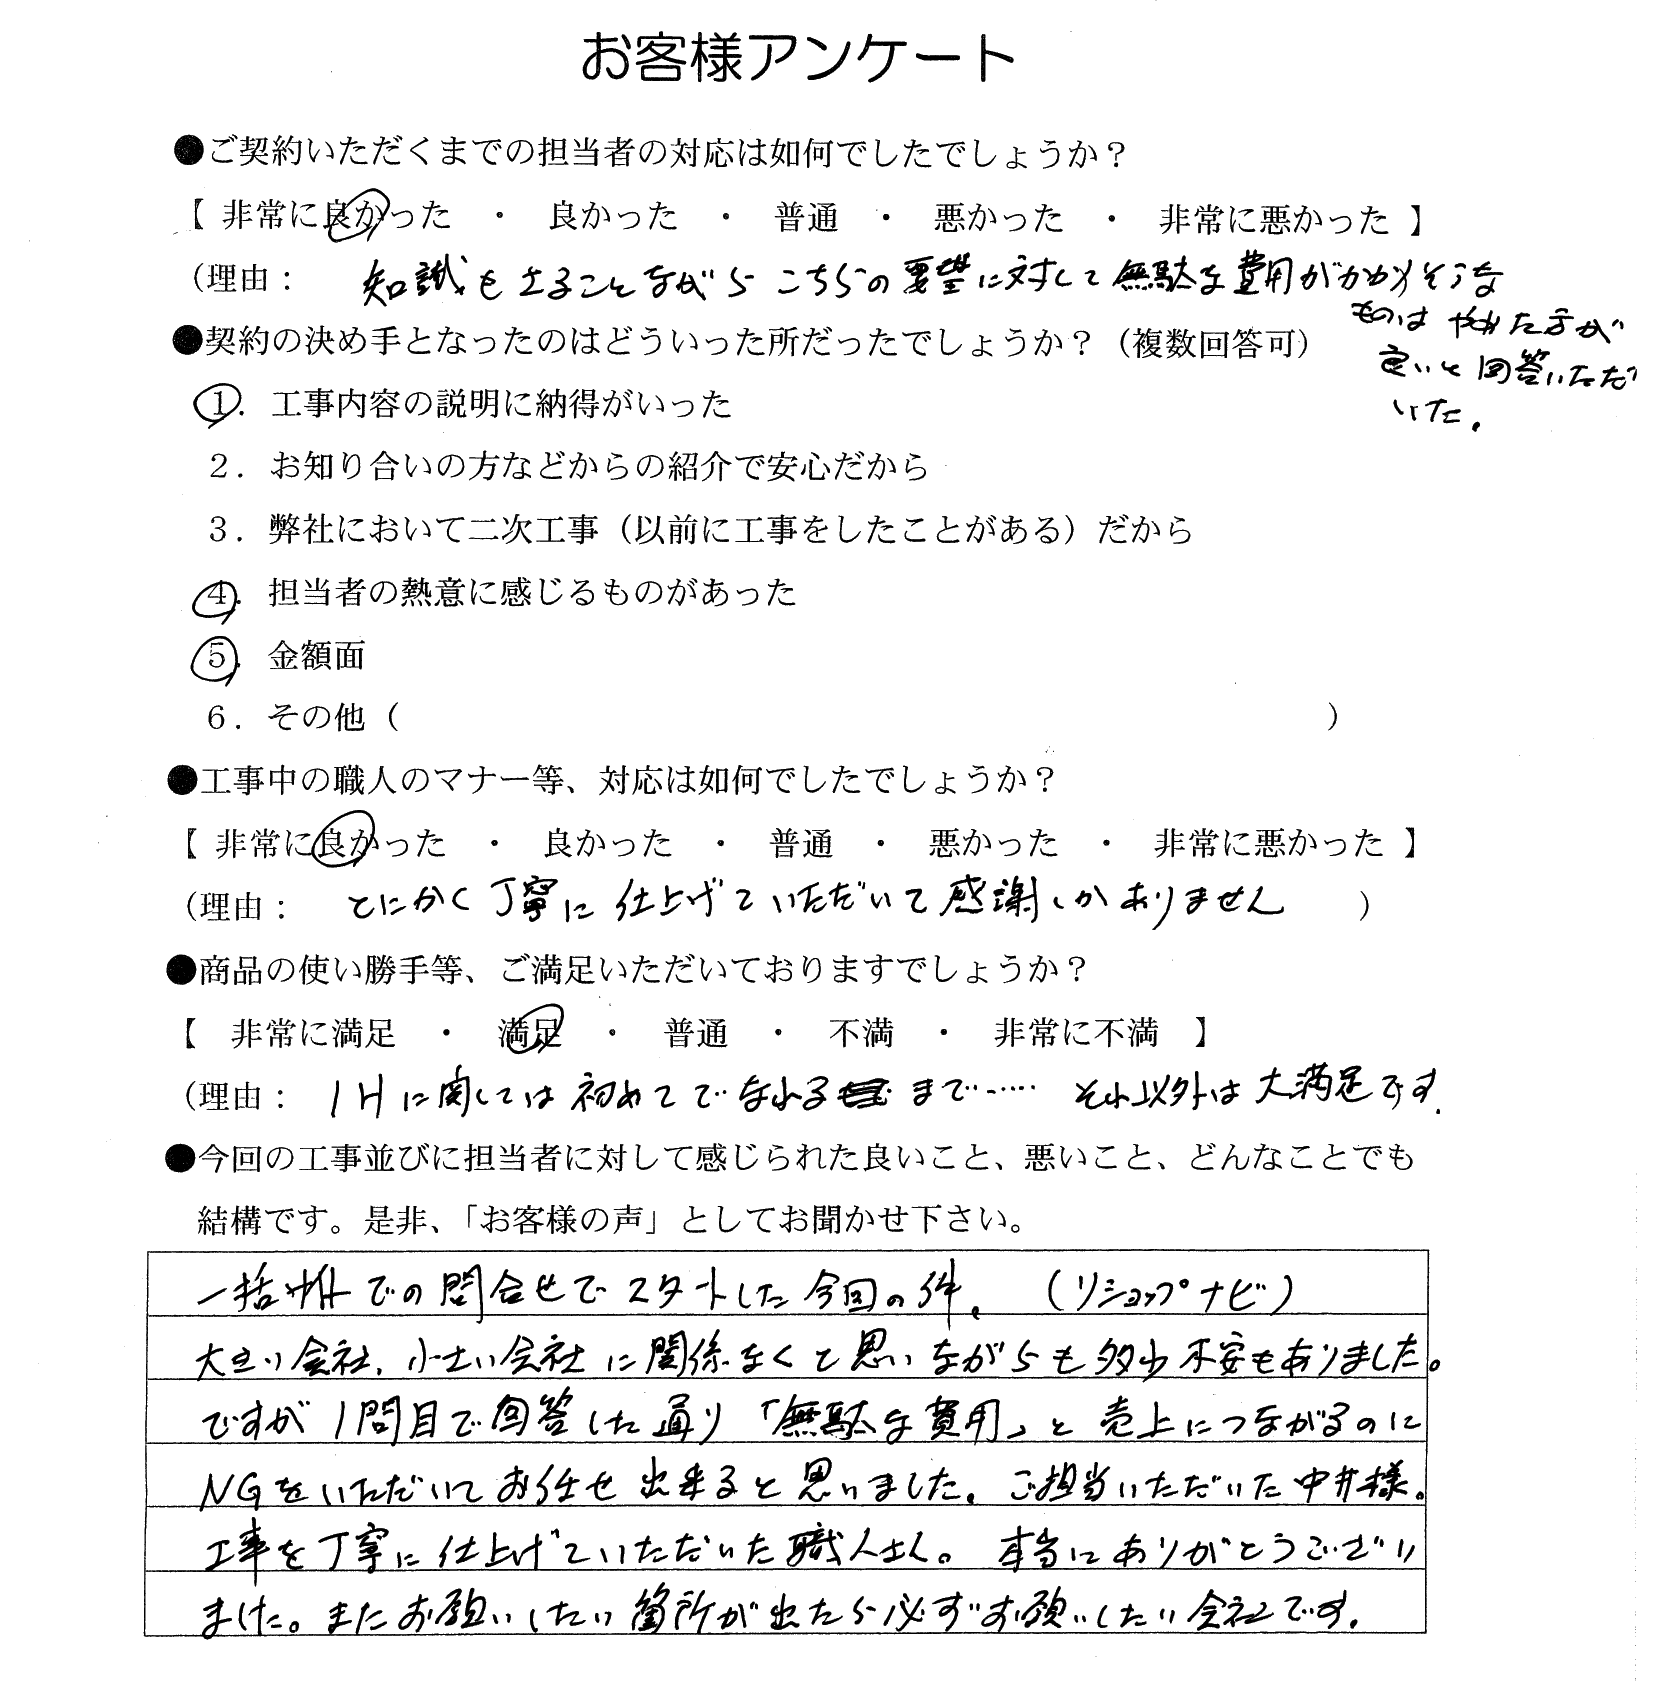 お客様アンケート
●ご契約いただくまでの担当者の対応は如何でしたでしょうか？
【 非常に良かった ・ 良かった ・ 普通 ・ 悪かった ・ 非常に悪かった 】
（理由： 知識もさることながら こちらの要望に対して無駄な費用がかかりそうな
ものは やめた方が
良いと 回答いただ
いた。
●契約の決め手となったのはどういった所だったでしょうか？（複数回答可）
１．工事内容の説明に納得がいった
２．お知り合いの方などからの紹介で安心だから
３．弊社において二次工事（以前に工事をしたことがある）だから
４．担当者の熱意に感じるものがあった
５．金額面
６．その他（ ）
●工事中の職人のマナー等、対応は如何でしたでしょうか？
【 非常に良かった ・ 良かった ・ 普通 ・ 悪かった ・ 非常に悪かった 】
（理由： とにかく丁寧に仕上げていただいて感謝しかありません ）
●商品の使い勝手等、ご満足いただいておりますでしょうか？
【 非常に満足 ・ 満足 ・ 普通 ・ 不満 ・ 非常に不満 】
（理由： IHに関しては初めてでなれるまで…… それ以外は大満足です.
●今回の工事並びに担当者に対して感じられた良いこと、悪いこと、どんなことでも
結構です。是非、「お客様の声」としてお聞かせ下さい。
一括サイトでの問合せでスタートした今回の件。（リショップナビ）
大きい会社、小さい会社に関係なくと思いながらも多少不安もありました。
ですが1問目で回答した通り「無駄な費用」と売上につながるのに
NGをいただいてお任せ出来ると思いました。ご担当いただいた中井様。
工事を丁寧に仕上げていただいた職人さん。本当にありがとうござい
ました。またお願いしたい箇所が出たら必ずお願いしたい会社です.